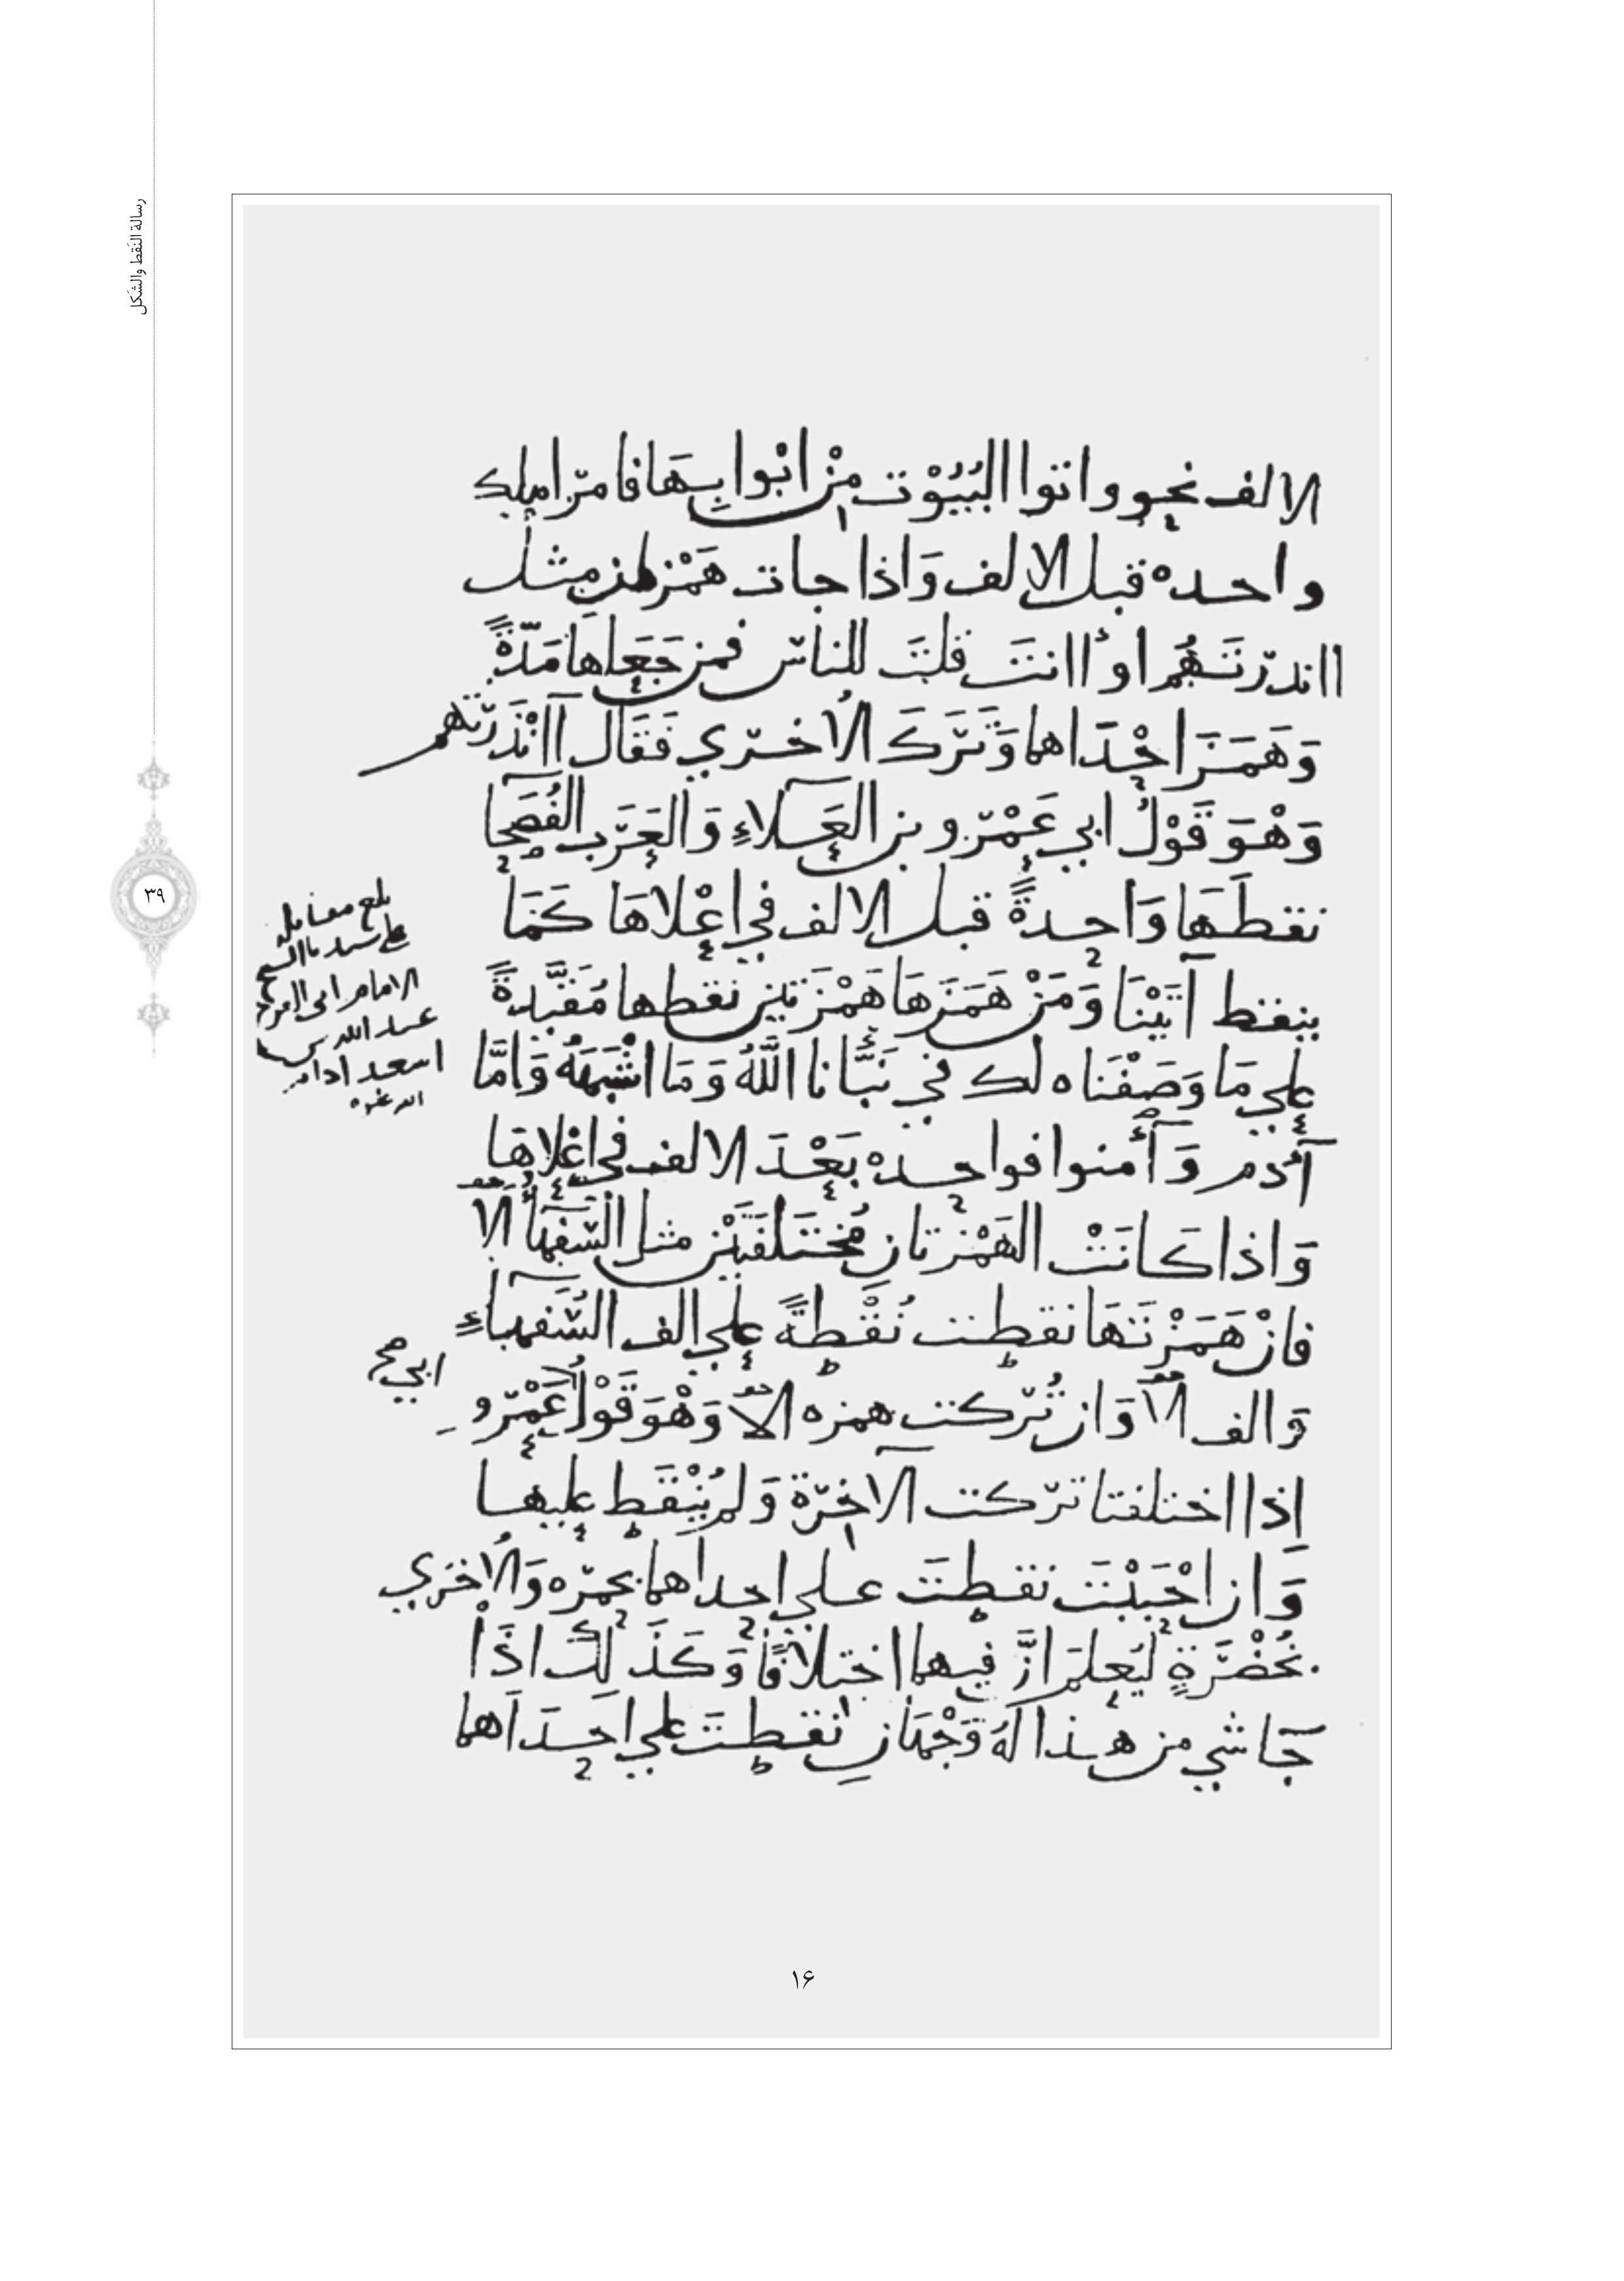 رسالة النَقط والشَكل
٣٩
الالف نحو واتوا البُيُوْت مِنْ ابْوابِهَا فامّرا
واحده قبل الالف وَاذا جات هَمْزتان مثل
ااندرتَهُم او اانتَ قلتَ للناس فمن جَعَلها مَدّةً
وَهَمَزَ احْدَاها وَتَرَكَ الاُخرَي فَقَال آانْذَرتَهم
وَهْوَ قَوْلُ ابي عَمْرو بن العَلاءِ وَالعَرَب الفُصَحَا
نقطَهَا وَاحدةً قبل الالف في اعْلاهَا كمَا
ينقط آتَيْنَا وَمَنْ هَمَزَهَا هَمْزَتين نقطها مُقَيَّدةً
علي مَا وَصَفْنَاه لك في نَبَّأنا اللَّهُ وَمَا اشْبَهَهُ وَامَّا
آدم وَآمنوا فواحده بَعْدَ الالف في اعْلاهَا
وَاذا كَانَتْ الهَمْزتان مُختَلفَتَيْن مثل السُّفَهَآءُ الَا
فانْ هَمَزْتَهَا نقطت نُقْطَةً علي الف السُّفهَآءِ
وَالف الَا وَان تُرّكت همزه الَا وَهْوَ قَوْلُ عَمْرو
ابي صح
اذا اختلفتا تركت الآخرَة وَلم يُنْقَط عليها
وَان احْبَبْتَ نقطتَ علي احداهما بحمرَه وَالاُخرَي
بخُضْرَةٍ ليُعلمَ انَّ فيها اختلافًا وَكَذَلكَ اذَا
جَآ شي من هذا لَهُ وَجْهَانِ نقطتَ علي احدَاهما
بلغ مقابله
الامام ابي الفرج
عبد الله بن
اسعد ادام
الله عزه
١۶